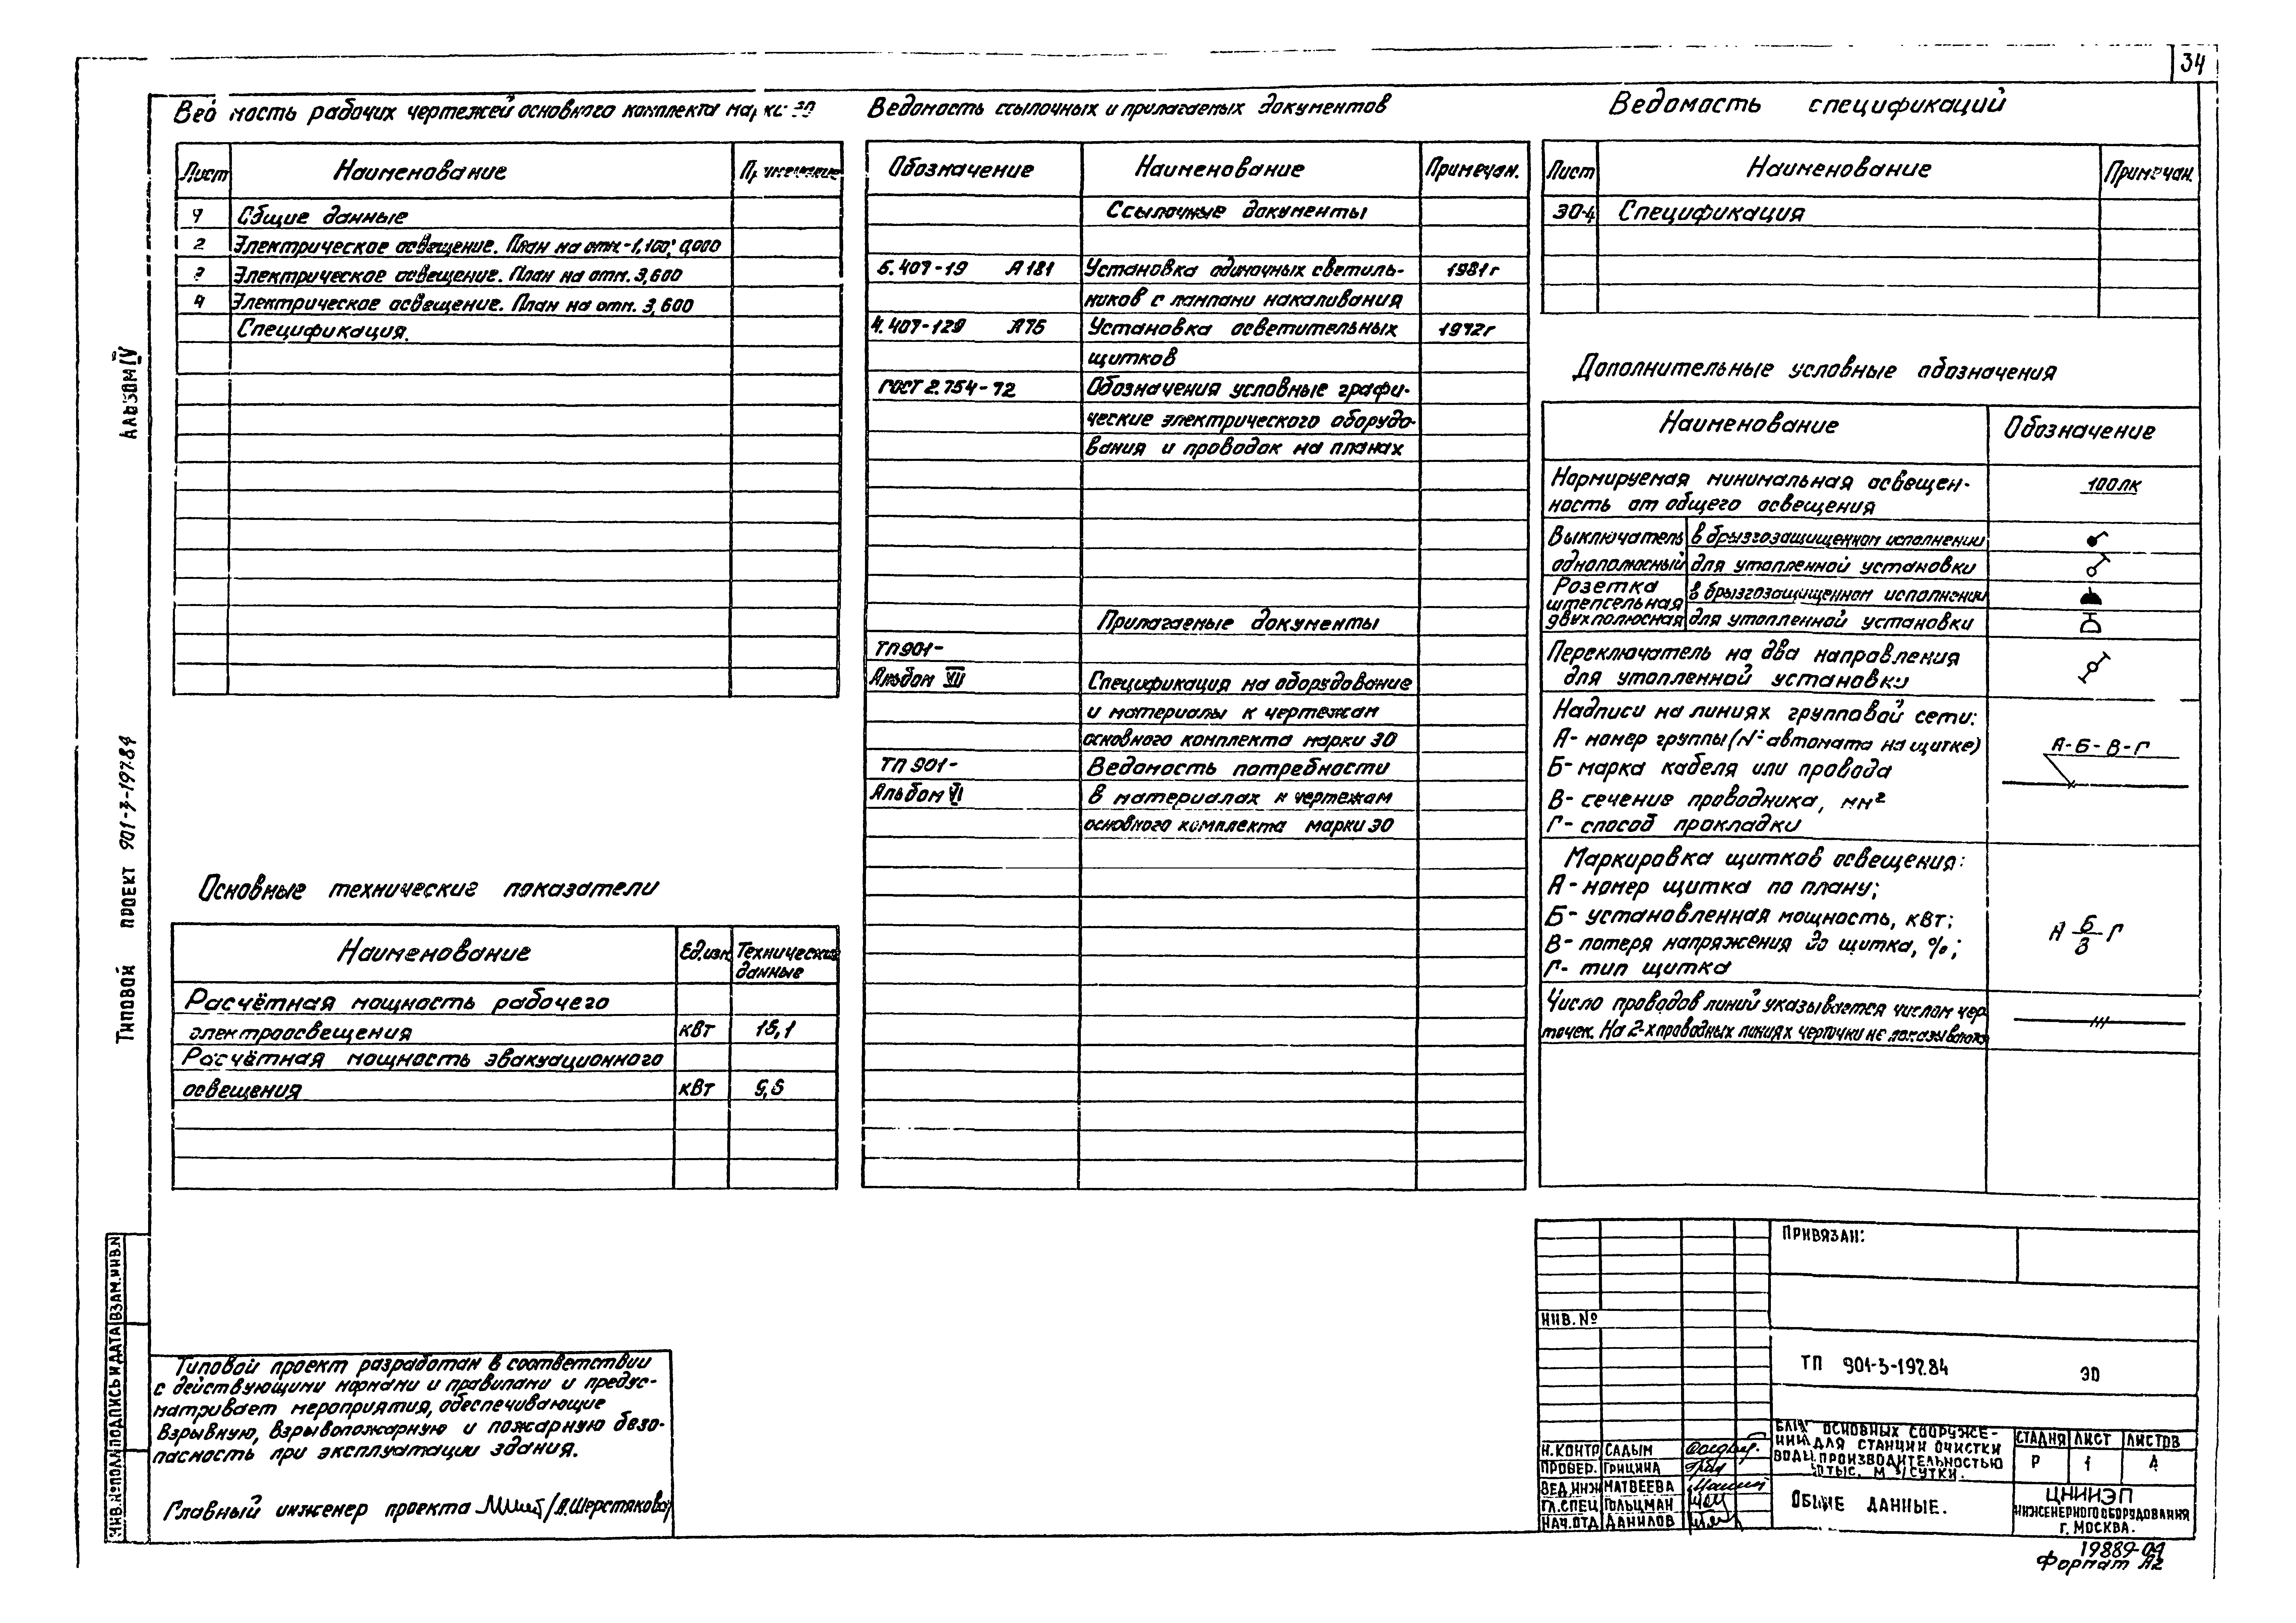 34
Ведомость рабочих чертежей основного комплекта марки ЭО
Лист Наименование Примечание
Общие данные
2 Электрическое освещение. План на отм. -1,100; 0,000
3 Электрическое освещение. План на отм. 3,600
4 Электрическое освещение. План на отм. 3,600
Спецификация.
Основные технические показатели
Наименование Ед.изм. Технические
данные
Расчётная мощность рабочего
электроосвещения кВт 15,1
Расчётная мощность эвакуационного
освещения кВт
Ведомость ссылочных и прилагаемых документов
Обозначение Наименование Примечан.
Ссылочные документы
5.407-19 А181 Установка одиночных светиль-
ников с лампами накаливания 1981г
4.407-129 А75 Установка осветительных 1972г
щитков
ГОСТ 2.754-72 Обозначения условные графи-
ческие электрического оборудо-
вания и проводок на планах
Прилагаемые документы
ТП901-
Альбом VII Спецификация на оборудование
и материалы к чертежам
основного комплекта марки ЭО
ТП 901- Ведомость потребности
Альбом VI в материалах к чертежам
основного комплекта марки ЭО
Ведомость спецификаций
Лист Наименование Примечан.
ЭО-4 Спецификация
Дополнительные условные обозначения
Наименование Обозначение
Нормируемая минимальная освещен-
ность от общего освещения 100лк
Выключатель в брызгозащищенном исполнении
однополюсный для утопленной установки
Розетка
штепсельная в брызгозащищенном исполнении
двухполюсная для утопленной установки
Переключатель на два направления
для утопленной установки
Надписи на линиях групповой сети:
А- номер группы (№ автомата на щитке)
Б- марка кабеля или провода
В- сечение проводника, мм²
Г- способ прокладки
А-Б-В-Г
Маркировка щитков освещения:
А- номер щитка по плану;
Б- установленная мощность, кВт;
В- потеря напряжения до щитка, %;
Г- тип щитка
А Б/В Г
Число проводов линий указывается числом чер
точек. На 2-х проводных линиях черточки не показываются
Альбом IV
Типовой проект 901-3-197.84
ИНВ.№ПОДЛ. ПОДПИСЬ И ДАТА ВЗАМ.ИНВ.N
Типовой проект разработан в соответствии
с действующими нормами и правилами и предус-
матривает мероприятия, обеспечивающие
взрывную, взрывопожарную и пожарную безо-
пасность при эксплуатации здания.
Главный инженер проекта /А.Шерстякова/
ПРИВЯЗАН:
ИНВ. №
ТП 901-3-197.84 ЭО
Н.КОНТР САДЫМ
ПРОВЕР. ГРИЦИНА
ВЕД.ИНЖ МАТВЕЕВА
ГЛ.СПЕЦ ГОЛЬЦМАН
НАЧ.ОТД ДАНИЛОВ
БЛОК ОСНОВНЫХ СООРУЖЕ-
НИЙ ДЛЯ СТАНЦИИ ОЧИСТКИ
ВОДЫ ПРОИЗВОДИТЕЛЬНОСТЬЮ
ТЫС. М³/СУТКИ.
СТАДИЯ ЛИСТ ЛИСТОВ
Р 1 4
ОБЩИЕ ДАННЫЕ.
ЦНИИЭП
ИНЖЕНЕРНОГО ОБОРУДОВАНИЯ
Г. МОСКВА.
19889-04
Формат А2